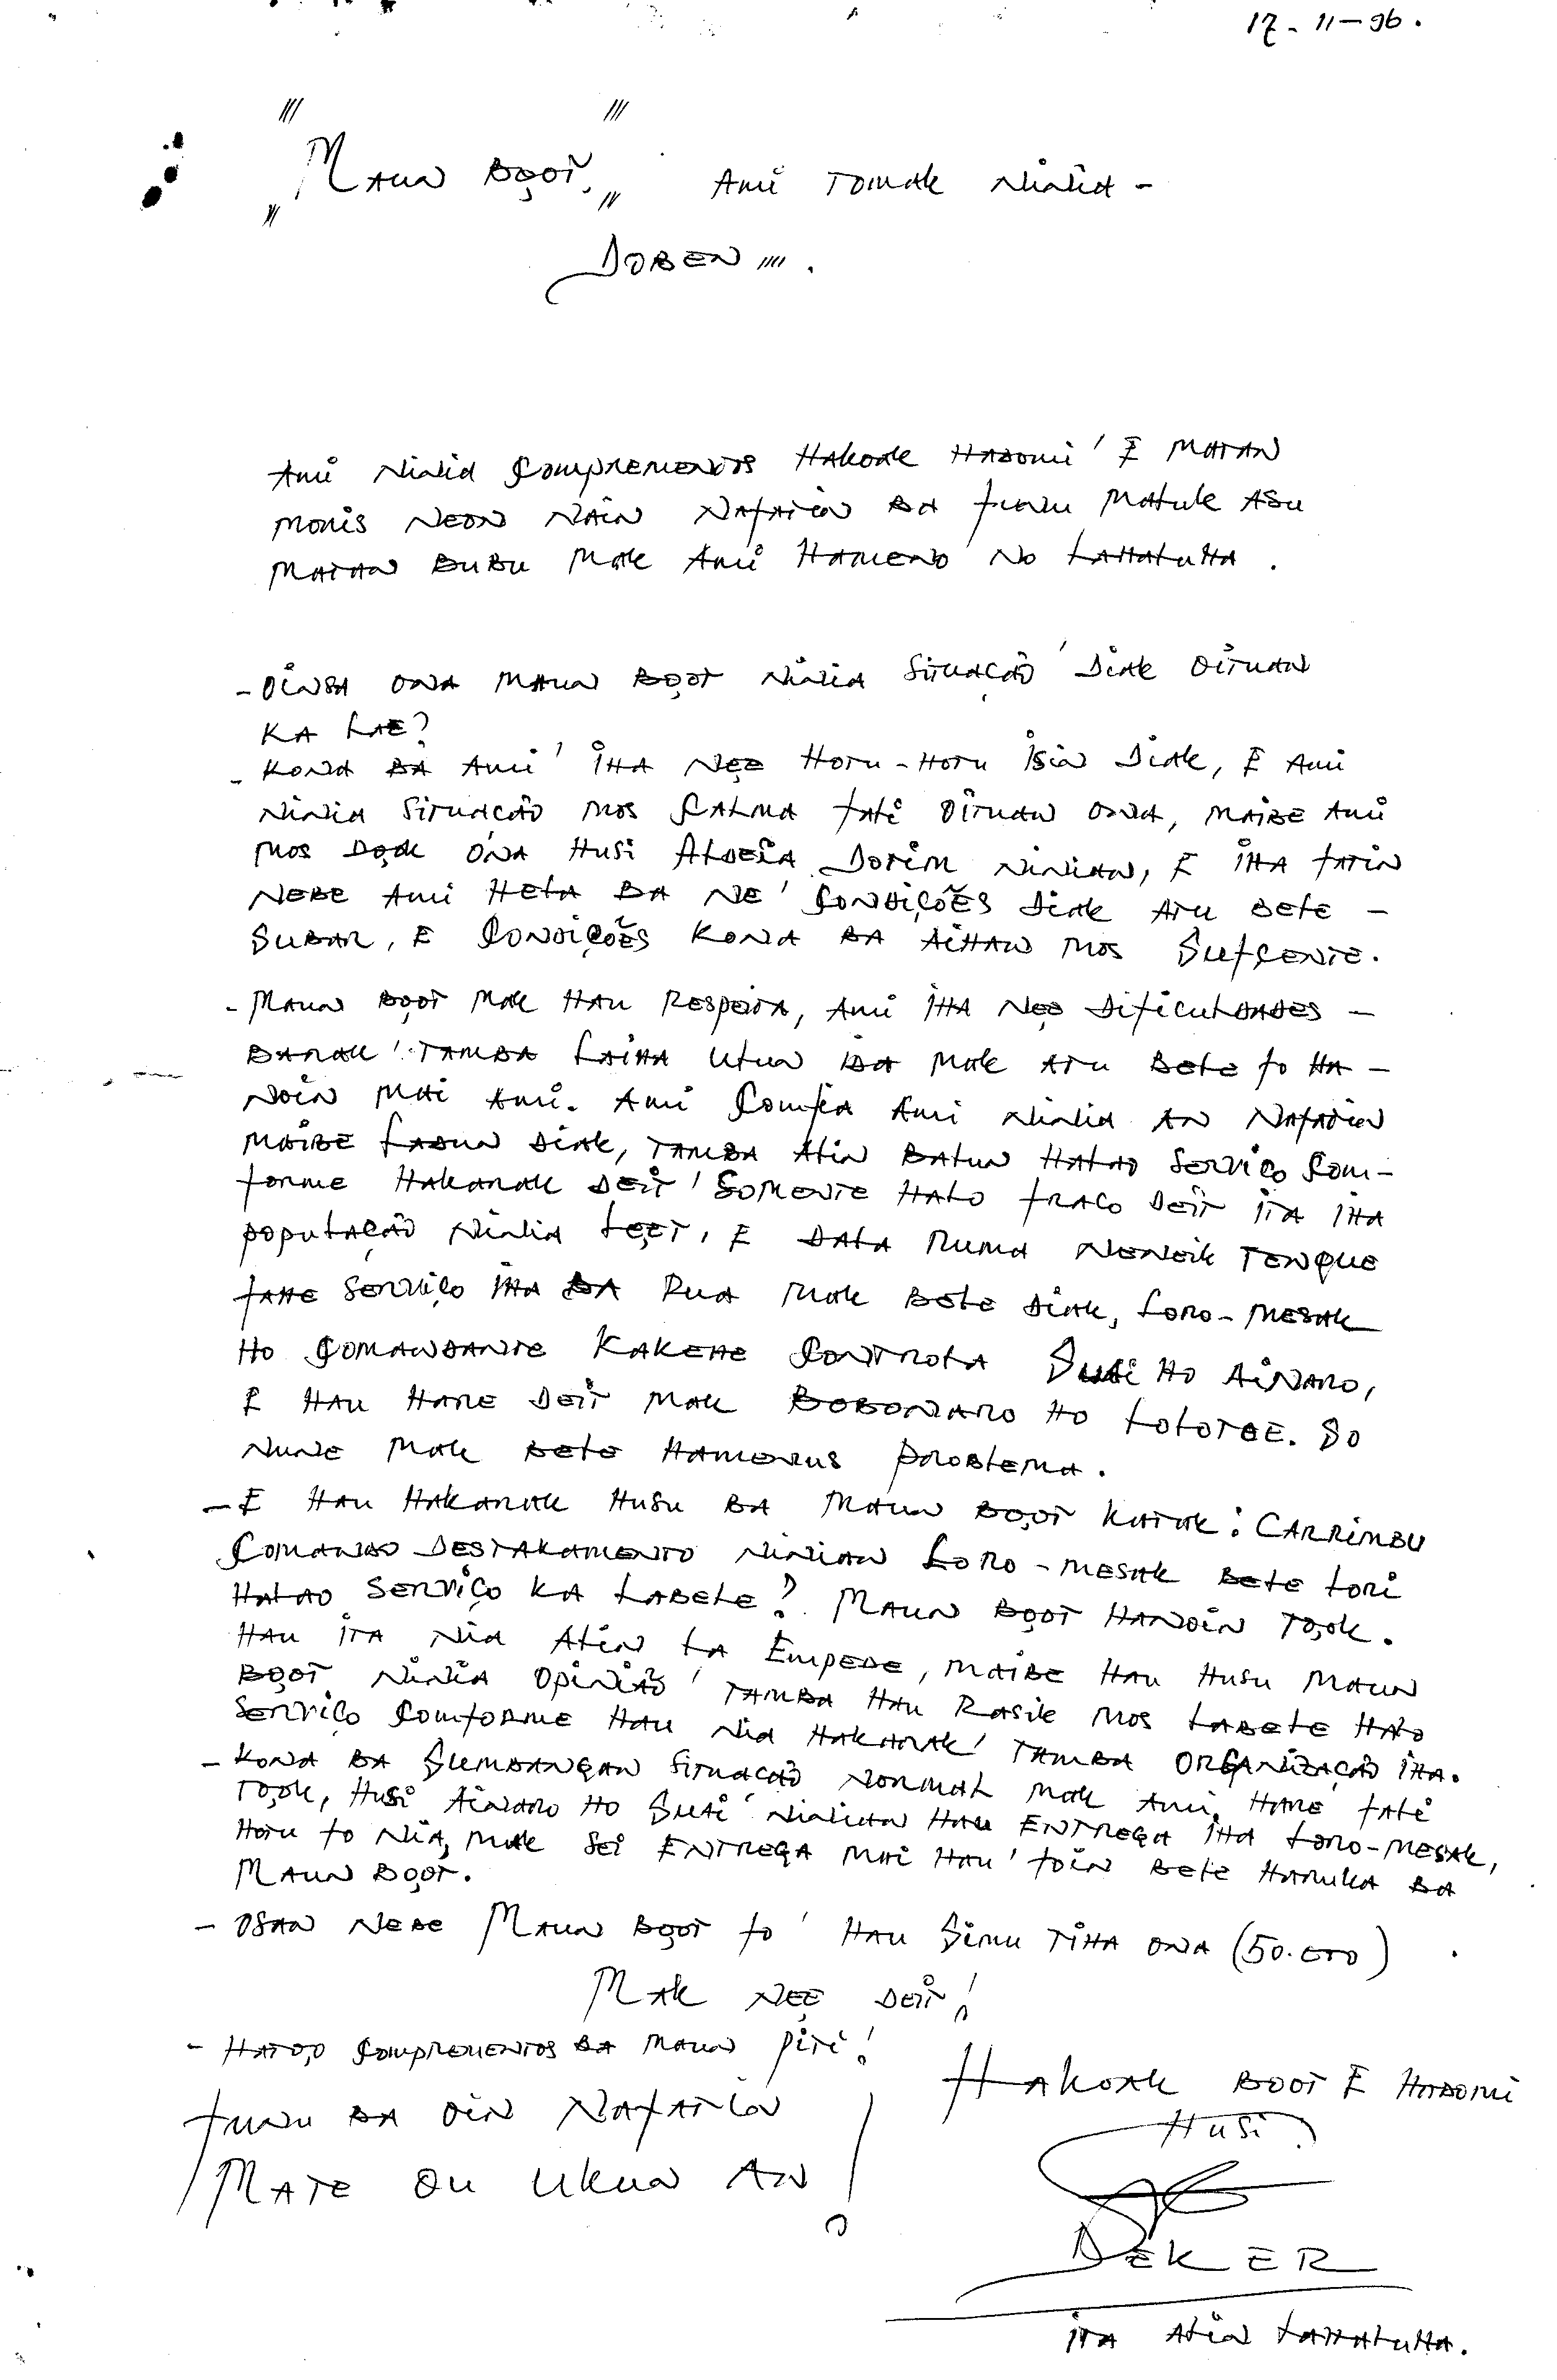 17-11-96.
"Maun Boot," Ami tomak ninia -
Doben".
Ami ninia comprementos hakoak hadomi e matan
moris neon nain nafatin ba funu matuk asu
matan bubu mak ami hameno no lahatuha.
- Oinsa ona maun boot ninia situação diak oituan
ka lae?
- Kona ba ami iha nee horu-horu isin diak, e ami
ninia situação mos calma fali oituan ona, maibe ami
mos dook ona husi aldeia dorim ninian, e iha fatin
nebe ami hela ba ne condições diak atu bele -
subar, e condições kona ba aihan mos sufcente.
- Maun boot mak hau respeita, ami iha nee dificuldades -
barak tamba laiha ulun ida mak atu bele fo ha -
noin mai ami. Ami comfia ami ninia an nafatin
maibe ladun diak, tamba alin balun halao serviço com-
forme hakarak deit somente halo fraco deit ita iha
população ninia leet, e dala ruma neneik tenque
fahe serviço iha ba rua mak bele diak, Loro-mesak
ho comandante Kakehe controla Suai ho Ainaro,
e hau hare deit mak Bobonaro ho Lolotoe. So
nune mak bele hamenus problema.
- E hau hakarak husu ba maun boot katak: carrimbu
comando destakamento ninian Loro-mesak bele lori
halao serviço ka labele? Maun boot hanoin took.
Hau ita nia alin la empede, maibe hau husu maun
boot ninia opinião tamba hau rasik mos labele halo
serviço comforme hau nia hakarak tamba organização iha.
- Kona ba sumbangan situação normal mak ami hare fali
took, husi Ainaro ho Suai ninian hau entrega iha Loro-mesak,
horu fo nia, mak sei entrega mai hau foin bele haruka ba
maun boot.
- Osan nebe Maun boot fo hau simu tiha ona (50.000)
Mak nee deit!
- Hatoo comprementos ba maun Piri!
Hakoak boot e hadomi
Funu ba oin nafatin
husi
Mate ou ukun an!
Deker
ita alin lahatuha.